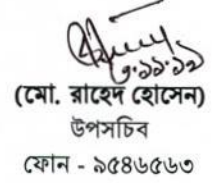 (মো. রাহেদ হোসেন)
উপসচিব
ফোন - ৯৫৪৬৫৬৩